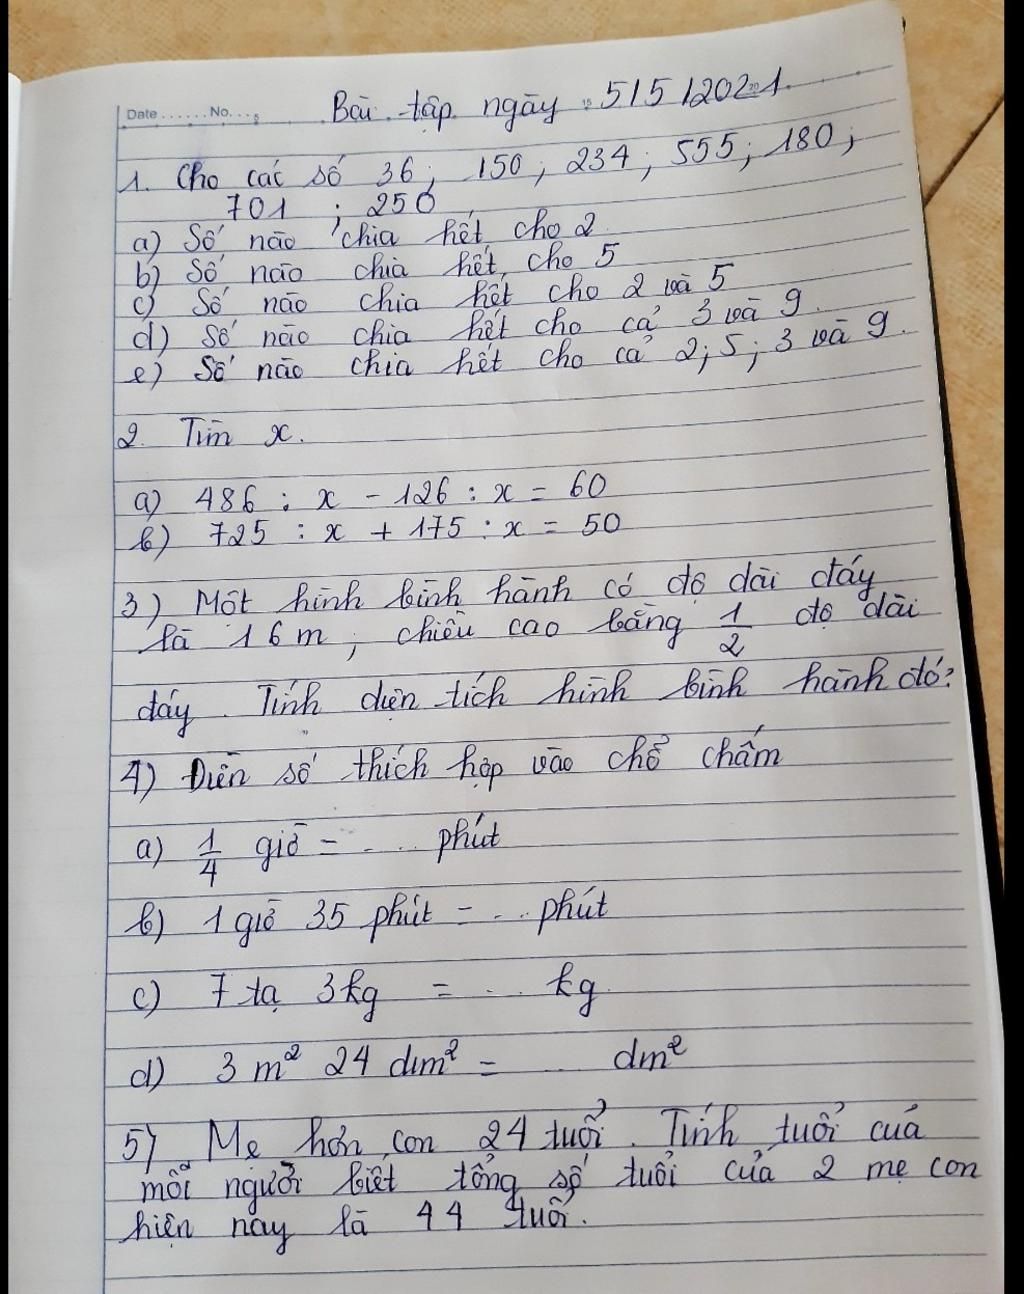 Date ...... No. ...
Bài tập ngày 5/5/2021
1. Cho các số 36 ; 150 ; 234 ; 555 ; 180 ;
701 ; 250
a) Số nào chia hết cho 2
b) Số nào chia hết cho 5
c) Số nào chia hết cho 2 và 5
d) Số nào chia hết cho cả 3 và 9.
e) Số nào chia hết cho cả 2; 5; 3 và 9.
2. Tìm x.
a) 486 : x - 126 : x = 60
b) 725 : x + 175 : x = 50
3) Một hình bình hành có độ dài đáy
là 16m, chiều cao bằng 1/2 độ dài
đáy. Tính diện tích hình bình hành đó?
4) Điền số thích hợp vào chỗ chấm
a) 1/4 giờ = ... phút
b) 1 giờ 35 phút = ... phút
c) 7 tạ 3kg = ... kg
d) 3 m² 24 dm² = ... dm²
5) Mẹ hơn con 24 tuổi. Tính tuổi của
mỗi người biết tổng số tuổi của 2 mẹ con
hiện nay là 44 tuổi.